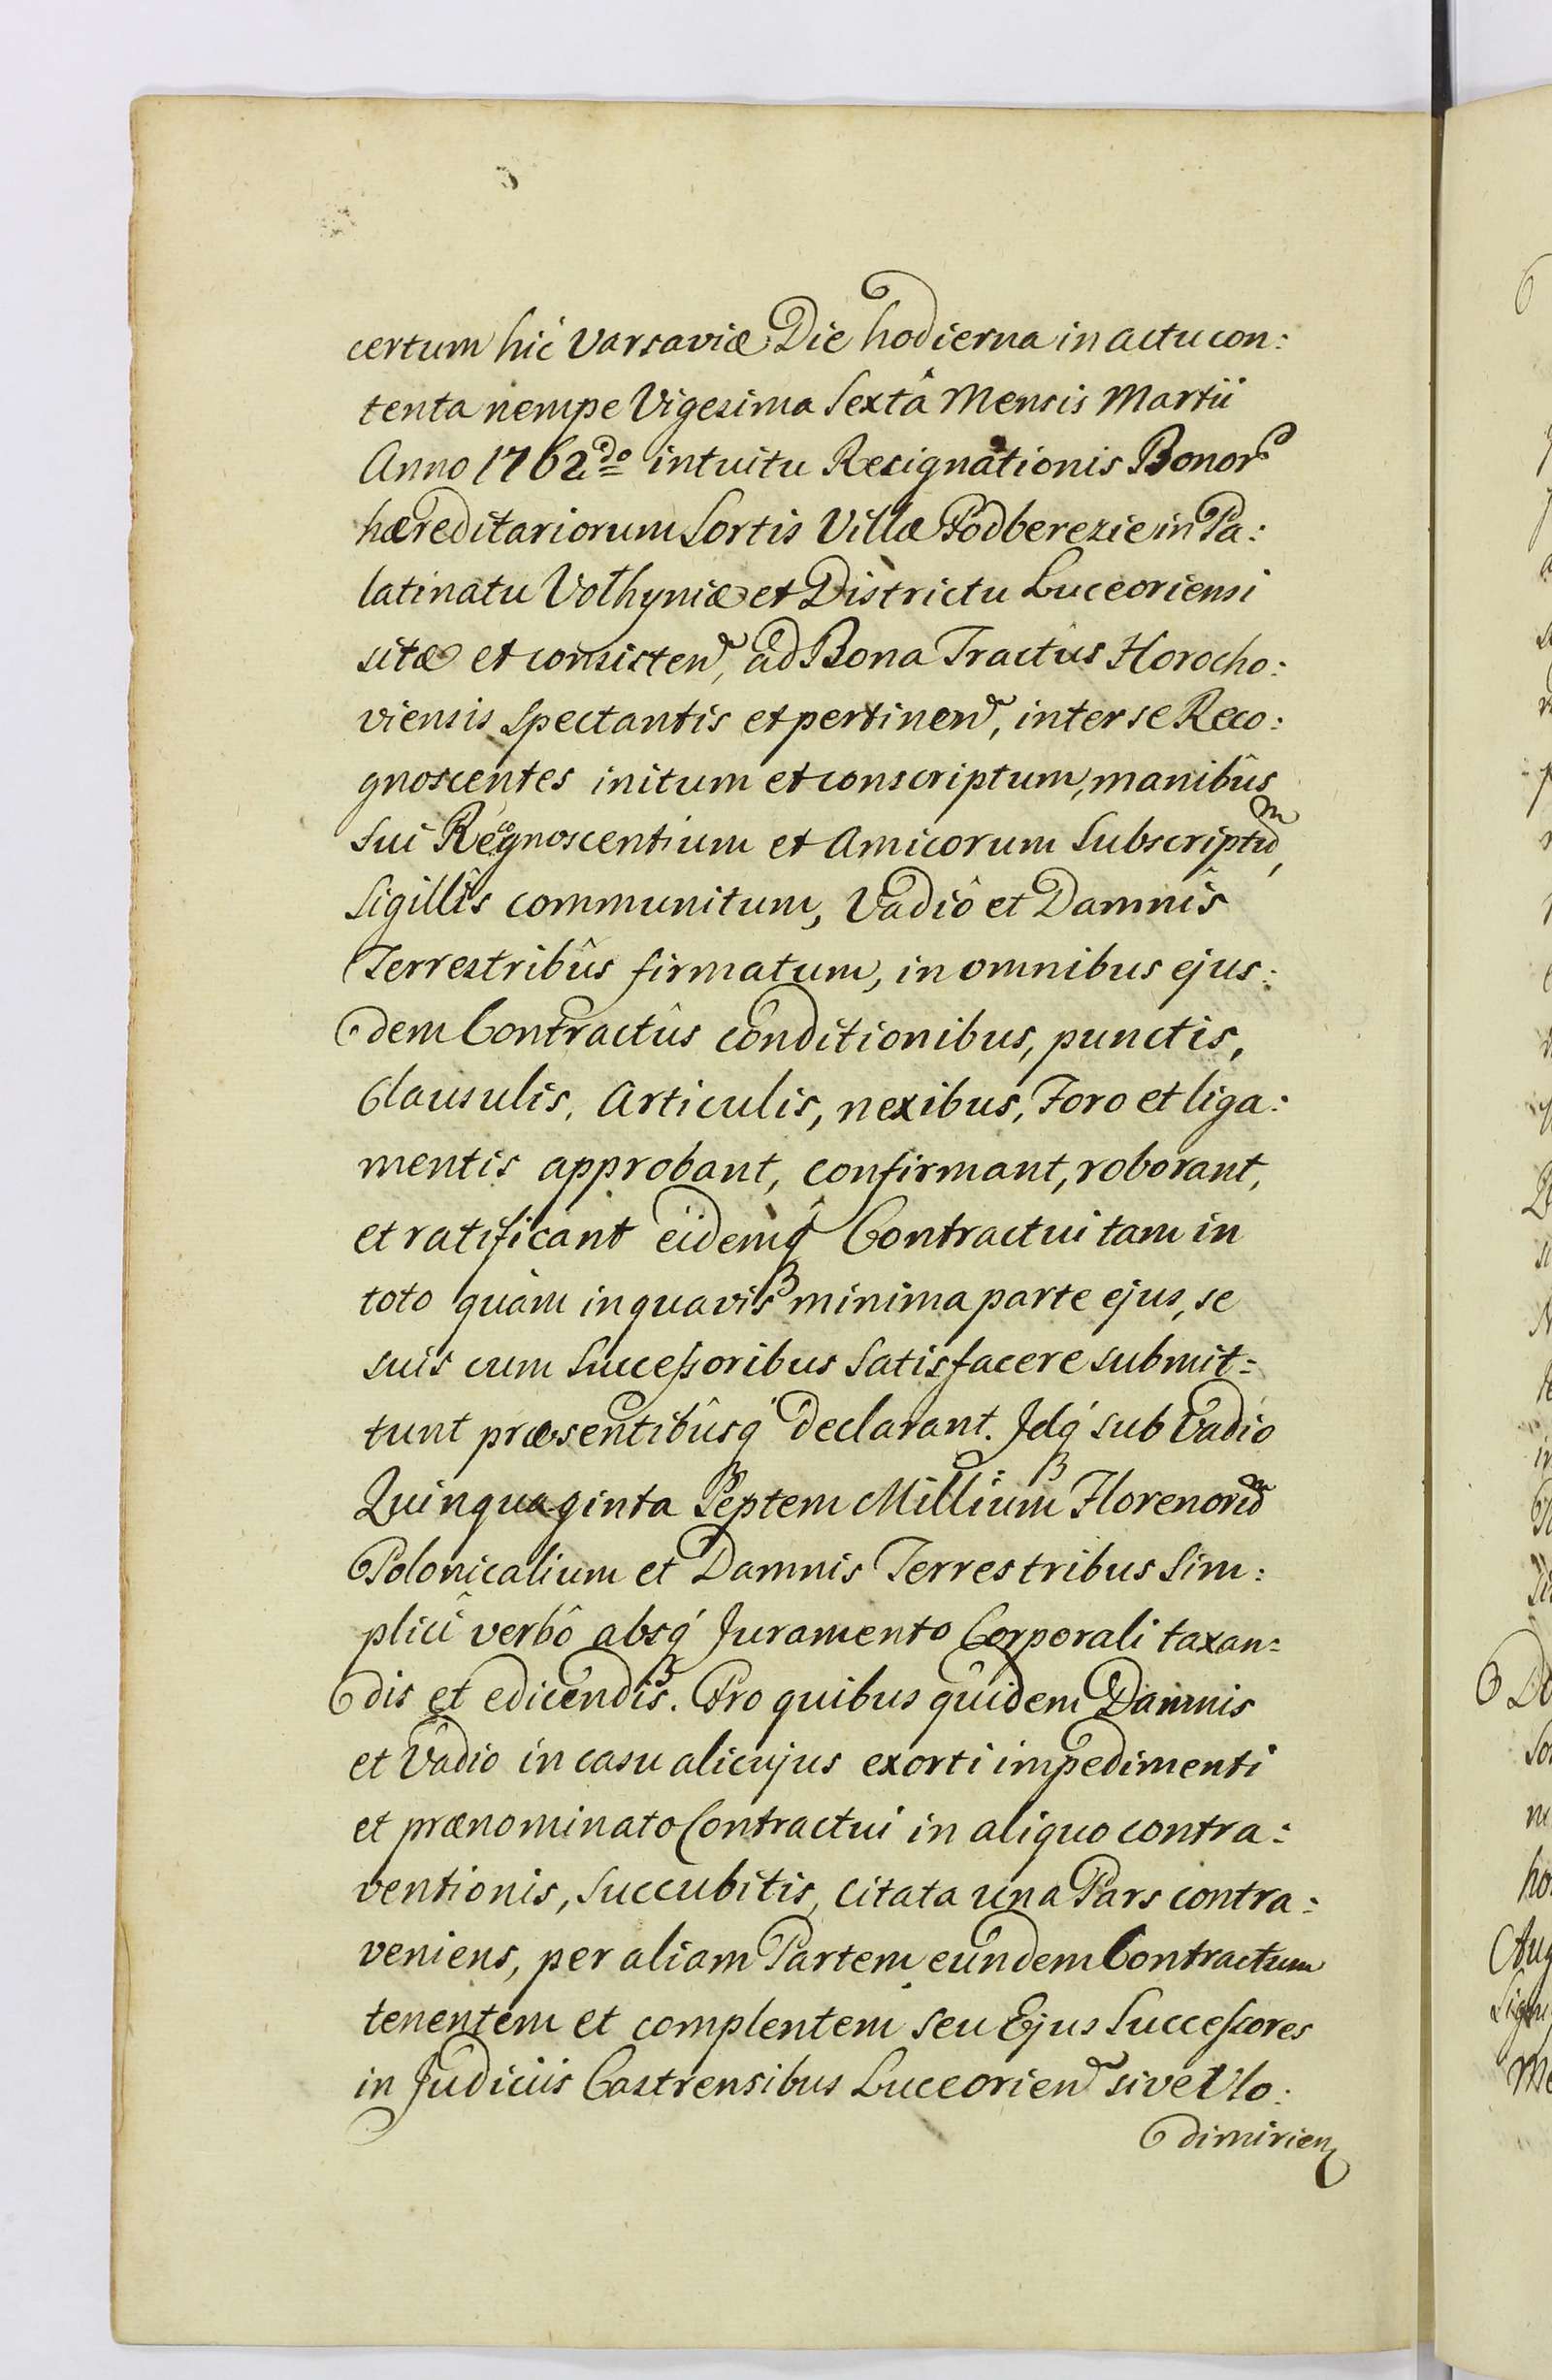 certum hic Varsaviæ Die hodierna in actu con:
tenta nempe Vigesima Sextâ Mensis Martii
Anno 1762do intuitu Resignationis Bonor
hæreditariorum Sortis Villæ Podberezie in Pa:
latinatu Volhyniæ et Districtu Luceoriensi
sitæ et consisten, ad Bona Tractûs Horocho:
viensis Spectantis et pertinen, inter se Reco:
gnoscentes initum et conscriptum, manibûs
sui Recognoscentium et Amicorum Subscriptum,
Sigillîs communitum, Vadiô et Damnîs
Terrestribûs firmatum, in omnibus ejus:
dem Contractûs conditionibus, punctis,
Clausulis, Articulis, nexibus, Foro et liga:
mentis approbant, confirmant, roborant,
et ratificant eidemq Contractui tam in
toto quàm in quavis minima parte ejus, se
suis cum Successoribus Satisfacere submit:
tunt præsentibûsq declarant. Idq sub Vadio
Quinquaginta Septem Millium Florenorum
Polonicalium et Damnis Terrestribus Sim:
plici verbô absq Juramento Corporali taxan:
dis et edicendis. Pro quibus quidem Damnis
et Vadio in casu alicujus exorti impedimenti
et prænominato Contractui in aliquo contra:
ventionis, succubitis, Citata una Pars contra:
veniens, per aliam Partem eundem Contractum
tenentem et complentem seu Ejus Successores
in Judiciis Castrensibus Luceorien sive Vlo:
dimirien